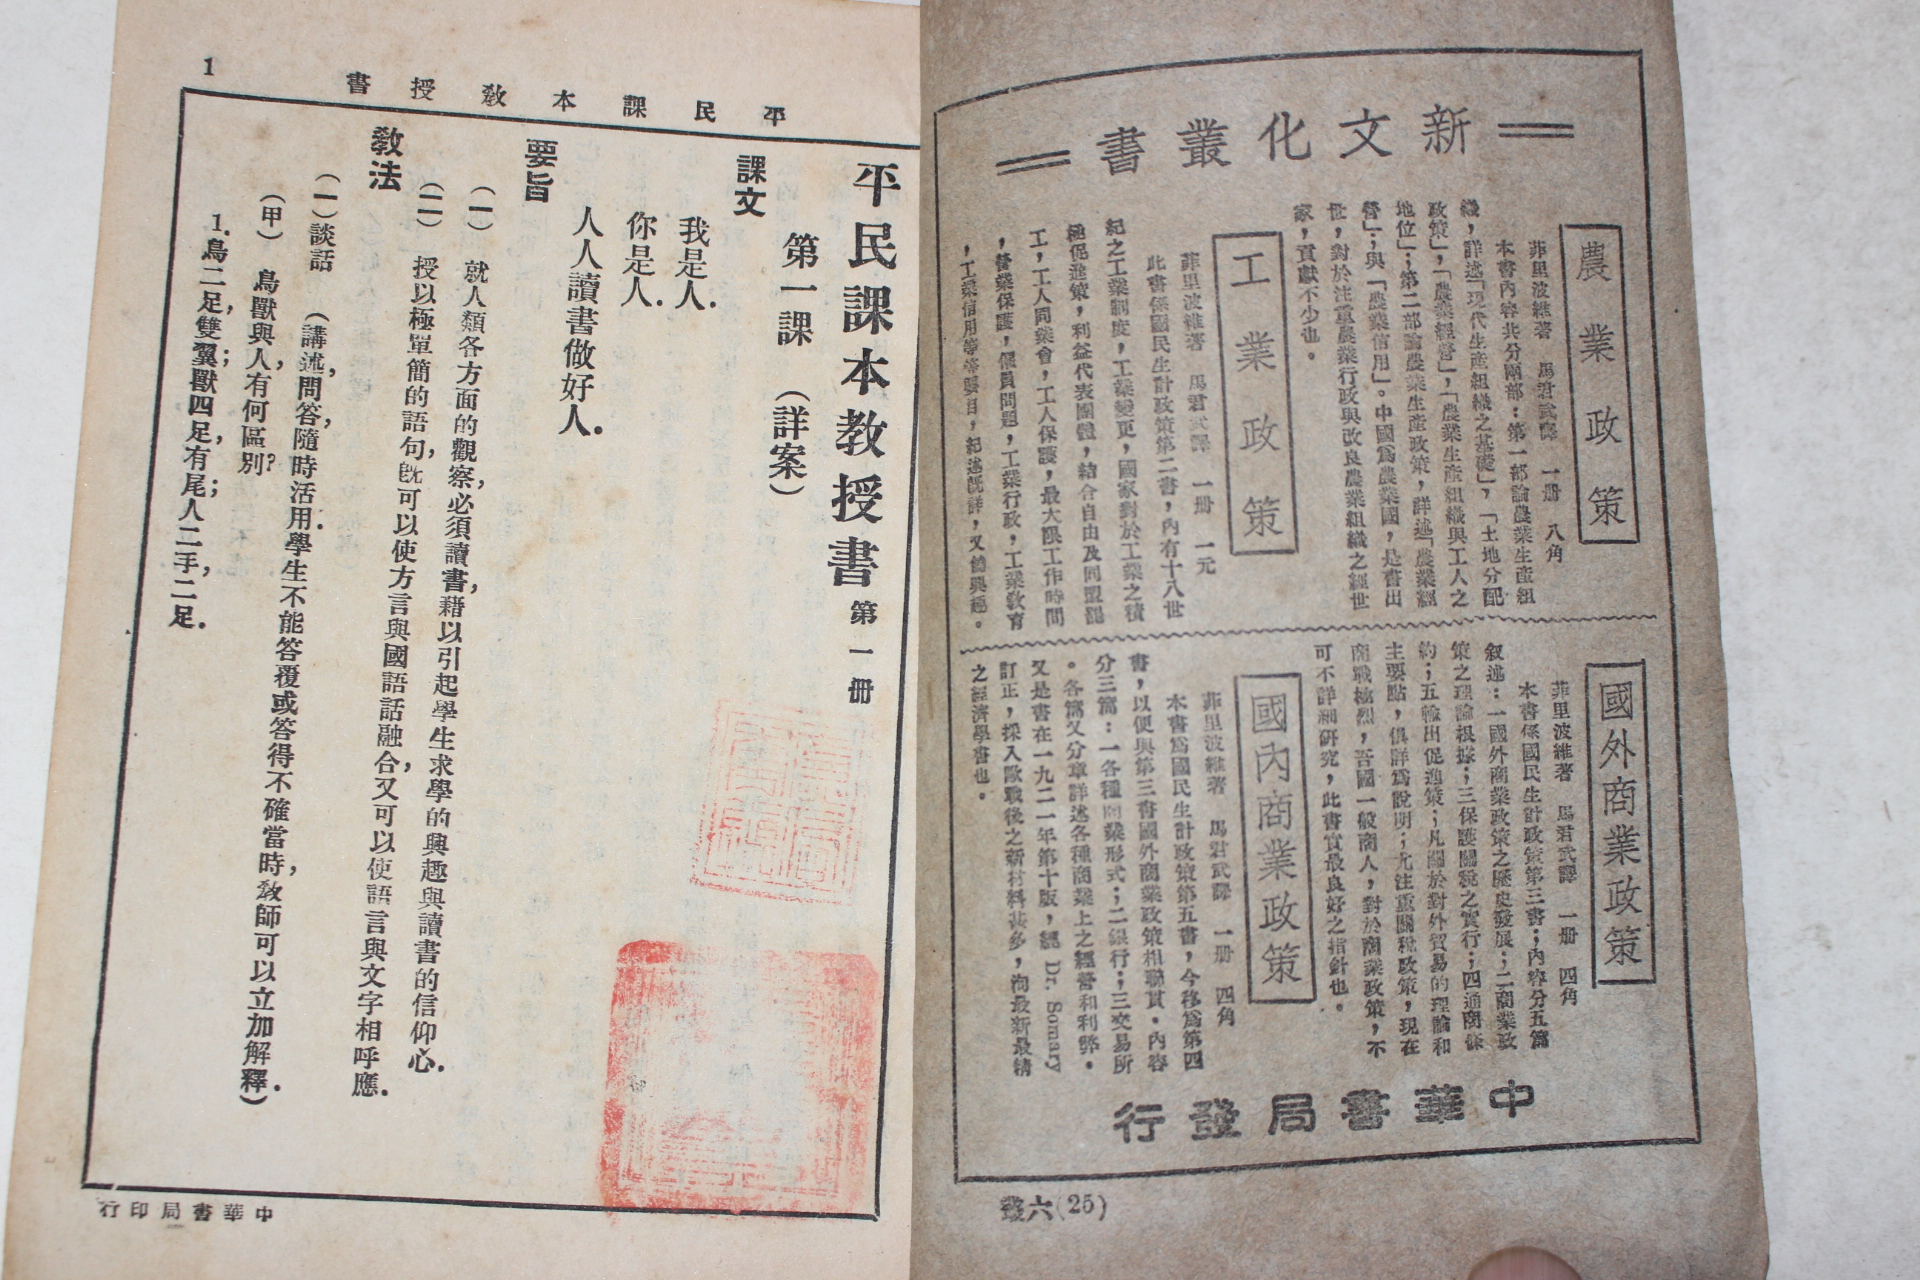 新文化叢書
農業政策
菲里波維著　馬君武譯　一册　八角
本書內容共分兩部：第一部論農業生產組
織，詳述「現代生產組織之基礎」，「土地分配
政策」，「農業經營」，「農業生產組織與工人之
地位」；第二部論農業生產政策，詳述「農業經
營」；與「農業信用」。中國爲農業國，是書出
世，對於注重農業行政與改良農業組織之經世
家，貢獻不少也。
工業政策
菲里波維著　馬君武譯　一册　一元
此書係國民生計政策第二書，內有十八世
紀之工業制度，工業變更，國家對於工業之積
極促進策，利益代表團體，結合自由及同盟罷
工，工人同業會，工人保護，最大限工作時間
，營業保護，傭員問題，工業行政，工業敎育
，工業信用等等要目，紀述旣詳，又饒興趣。
國外商業政策
菲里波維著　馬君武譯　一册　四角
本書係國民生計政策第三書；內容分五篇
叙述：一國外商業政策之歷史發展；二商業政
策之理論根據；三保護關稅之實行；四通商條
約；五輸出促進策；凡關於對外貿易的理論和
主要點，俱詳爲說明；尤注重關稅政策，現在
商戰極烈，吾國一般商人，對於商業政策，不
可不詳細研究，此書實最良好之指針也。
國內商業政策
菲里波維著　馬君武譯　一册　四角
本書爲國民生計政策第五書，今移爲第四
書，以便與第三書國外商業政策相聯貫。內容
分三篇：一各種商業形式；二銀行；三交易所
。各篇又分章詳述各種商業上之經營和利弊。
又是書在一九二一年第十版，經 Dr. Somary
訂正，採入歐戰後之新材料甚多，洵最新最精
之經濟學書也。
中華書局發行
叢六(25)
平民課本敎授書
1
平民課本教授書第一册
第一課　（詳案）
課文
我是人．
你是人．
人人讀書做好人．
要旨
（一）　就人類各方面的觀察，必須讀書，藉以引起學生求學的興趣與讀書的信仰心．
（二）　授以極單簡的語句，旣可以使方言與國語話融合，又可以使語言與文字相呼應．
敎法
（一）談話　（講述，問答，隨時活用．學生不能答覆或答得不確當時，敎師可以立加解釋．）
（甲）　鳥獸與人，有何區別？
1.鳥二足，雙翼；獸四足，有尾；人二手，二足．
中華書局印行